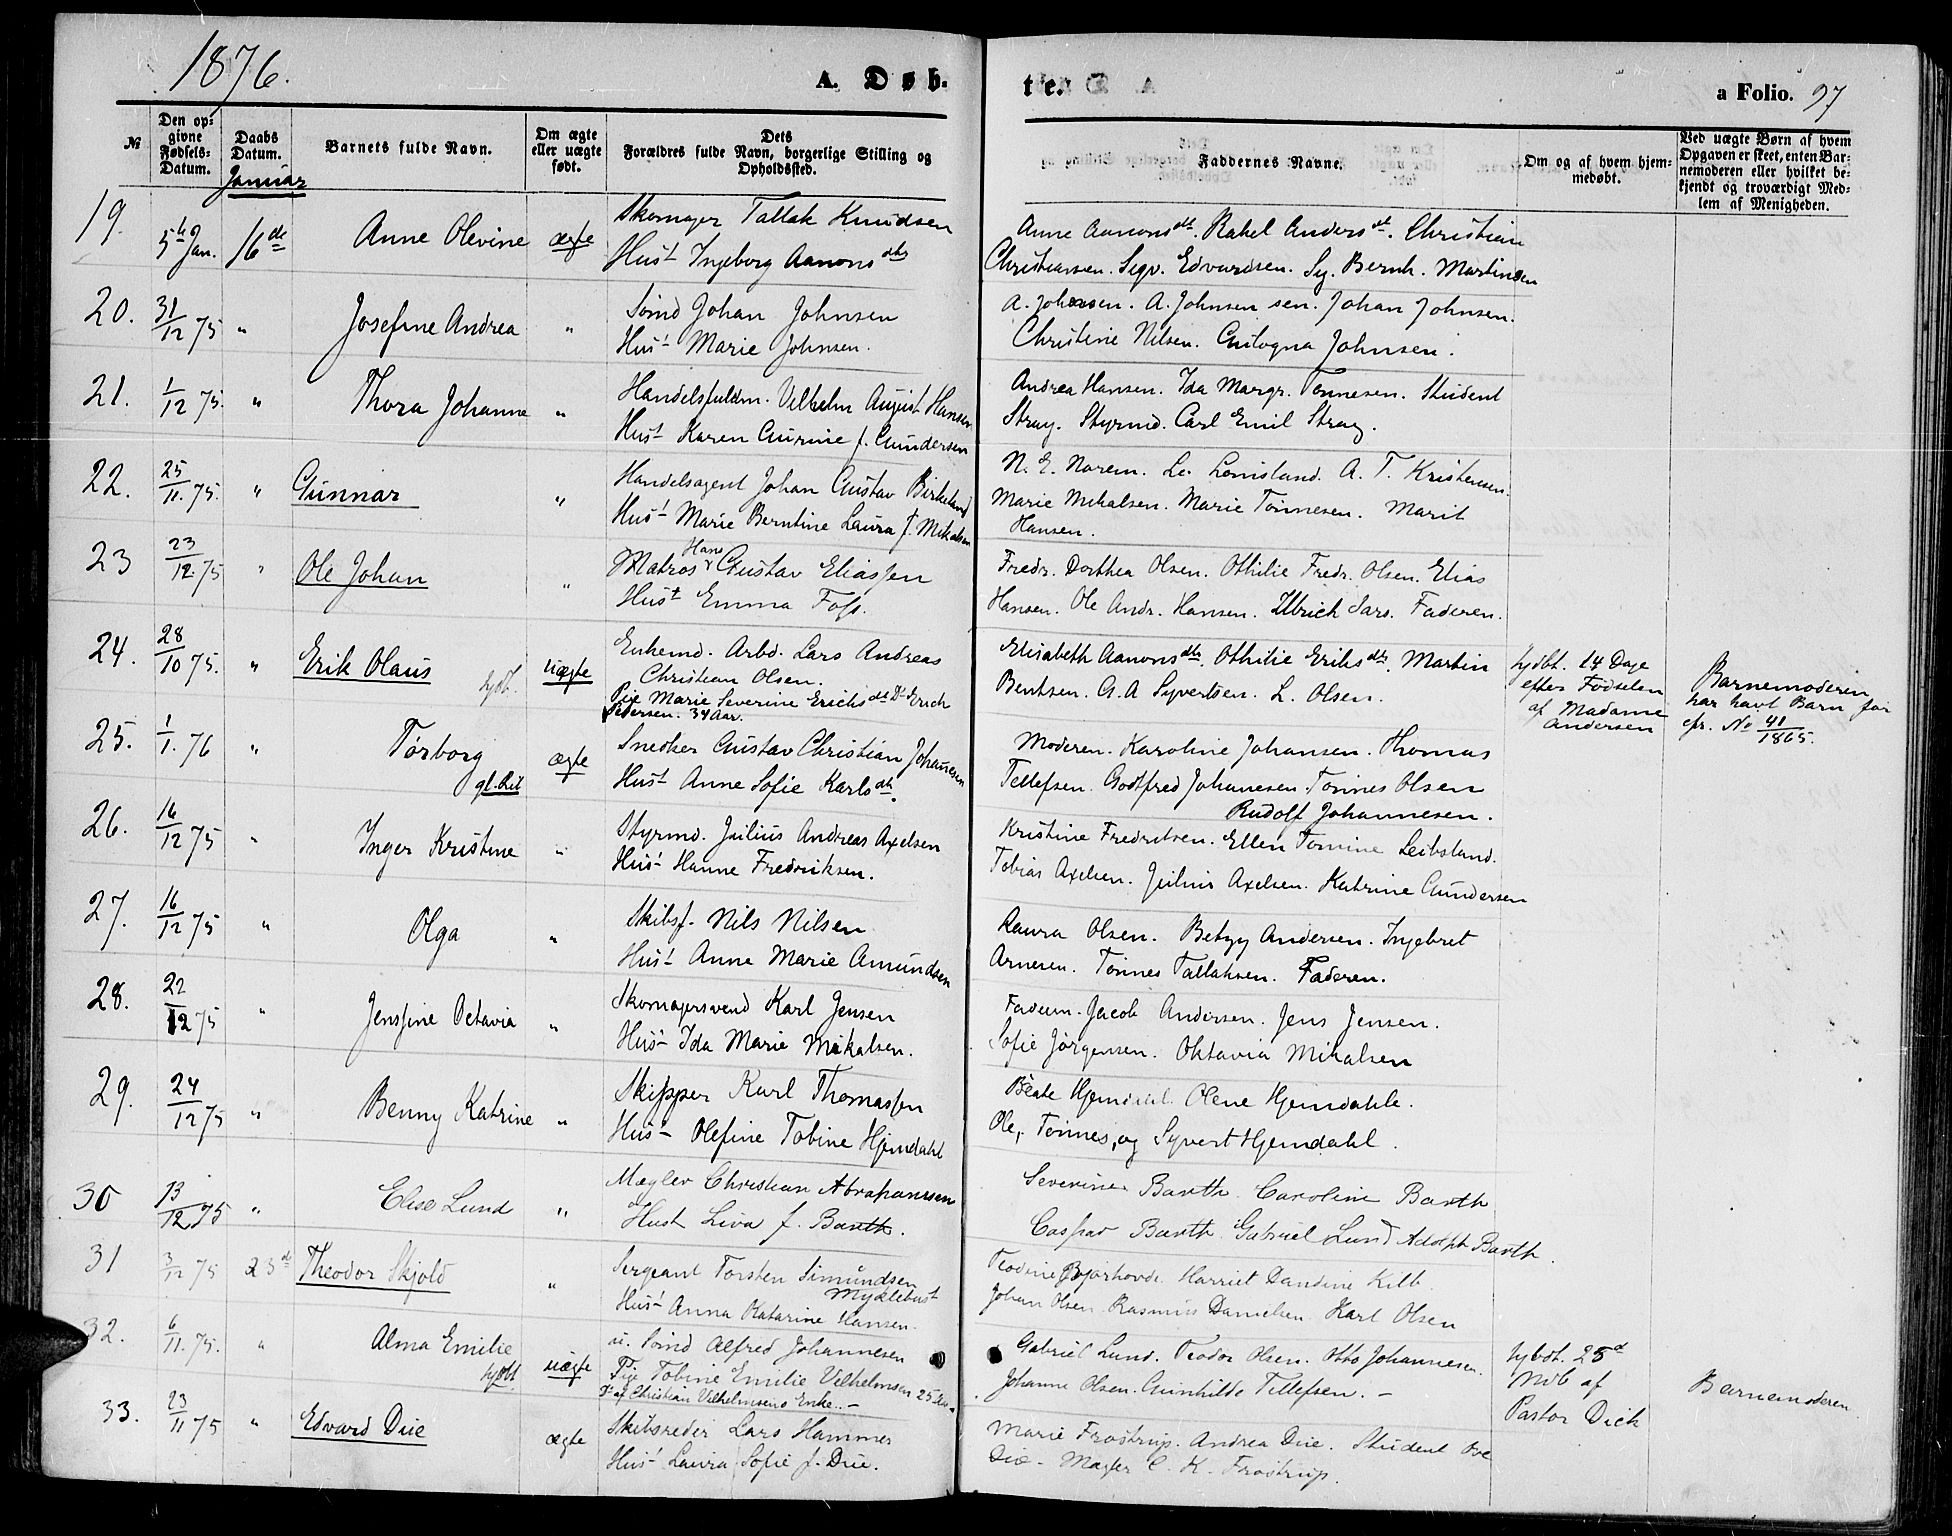 1876.
A. Døb-
te.
a Folio. 97
№
Den op-
givne
Fødsels-
Datum.
Daabs
Datum.
Januar
Barnets fulde Navn.
Om ægte
eller uægte
født.
Dets
Forældres fulde Navn, borgerlige Stilling og
Opholdssted.
Faddernes Navne.
Om og af hvem hjem-
medøbt.
Ved uægte Børn af hvem
Opgaven er skeet, enten Bar-
nemoderen eller hvilket be-
kjendt og troværdigt Med-
lem af Menigheden.
19. 5te Jan. 16de Anne Olevine ægte Skomager Tallak Knudsen
Hust Ingeborg Aanonsdtr
Anne Aanonsdt. Rakel Andersdt. Christian
Christiansen. Sigv. Edvardsen. Sy. Bernh. Martinsen
20. 31/12 75 " Josefine Andrea " Sømd Johan Johnsen
Hust Marie Johnsen.
A. Johnsen. A. Johnsen sen. Johan Johnsen.
Christine Nilsen. Johnsen.
21. 1/12 75. " Thora Johanne " Handelsfuldm. Vilhelm August Hansen
Hust Karen Gurine f. Gundersen
Andrea Hansen. Ida Margr. Tønnesen. Student
Stray. Styrmd. Carl Emil Stray.
22. 25/11. 75. " Gunnar " Handelsagent Johan Gustav Birkeland
Hust Marie Berntine Laura f. Mikalsen
N. E. Norem. Le. Lomsland. A. T. Kristensen.
Marie Mikalsen. Marie Tønnesen. Marit
Hansen.
23 23/12. 75 " Ole Johan " Matros Hans Gustav Eliassen
Hust Emma Foss.
Fredr. Dorthea Olsen. Othilie Fredr. Olsen. Elias
Hansen. Ole Andr. Hansen. Ulbrich Sars. Faderen.
24. 28/10 75. " Erik Olaus hjdbt. uægte Enkemd. Arbd. Lars Andreas
Christian Olsen.
Pige Marie Severine Erichsdt Dt Erich
Pedersen. 34 Aar.
Elisabeth Aanonsdtr. Othilie Eriksdtr. Martin
Bentsen. G. A Syvertsen. L. Olsen.
hjdbt. 14 Dage
efter Fødselen
af Madame
Andersen
Barnemoderen
har havt Barn før
cfr. No 41/1865.
25. 1/1. 76 " Torborg ægte Snedker Gustav Christian Johanesen
Hust Anne Sofie Karlsdt.
Moderen. Karoline Johansen. Thomas
Tellefsen. Godtfred Johanesen. Tønnes Olsen
Rudolf Johannesen.
26. 16/12 75 " Inger Kristine " Styrmd. Julius Andreas Axelsen
Hust Hanne Fredriksen.
Kristine Fredriksen. Ellen Tomine Leibsland.
Tobias Axelsen. Julius Axelsen. Katrine Gundersen
27. 16/12 75 " Olga " Skibsf. Nils Nilsen
Hust Anne Marie Amundsen
Laura Olsen. Betzy Andersen. Ingebret
Arnesen. Tønnes Tallaksen. Faderen.
28. 22/12 75 " Jensine Octavia " Skomagersvend Karl Jensen
Hust Ida Marie Mikalsen.
Faderen. Jacob Andersen. Jens Jensen.
Sofie Jørgensen. Oktavia Mikalsen
29. 24/12 75 " Benny Katrine " Skipper Karl Thomassen
Hust Olefine Tobine Hjemdahl
Beate Hjemdahl. Olene Hjemdahle.
Ole, Tønnes, og Syvert Hjemdahl.
30 13/12 75 " Elise Lund " Mægler Christian Abrahamsen
Hust Liva f. Barth.
Severine Barth. Caroline Barth
Caspar Barth. Gabriel Lund Adolph Barth.
31 3/12 75 23de Theodor Skjold " Sergeant Torsten Simundsen
Myklebust
Hust Anna Katarine Hansen.
Teodine Harriet Dandine Kilb
Johan Olsen. Rasmus Danielsen Karl Olsen
32. 6/11. 75. " Alma Emilie hjdbt. uægte u. Sømd Alfred Johannesen
Pige Tobine Emilie Vilhelmsen 25 Aar
Dt af Christian Vilhelmsens Enke. -
Gabriel Lund. Teodor Olsen. Otto Johannesen.
Johanne Olsen. Gunhilde Tellefsen. -
hjbdt. 25d
Nvb af
Pastor Dick
Barnemoderen.
33. 23/11 75 " Edvard Due ægte Skibsreder Lars Hammer
Hust Laura Sofie f. Due.
Marie Frøstrup. Andrea Due. Student Ove
Due - Mægler C. K. Frøstrup.